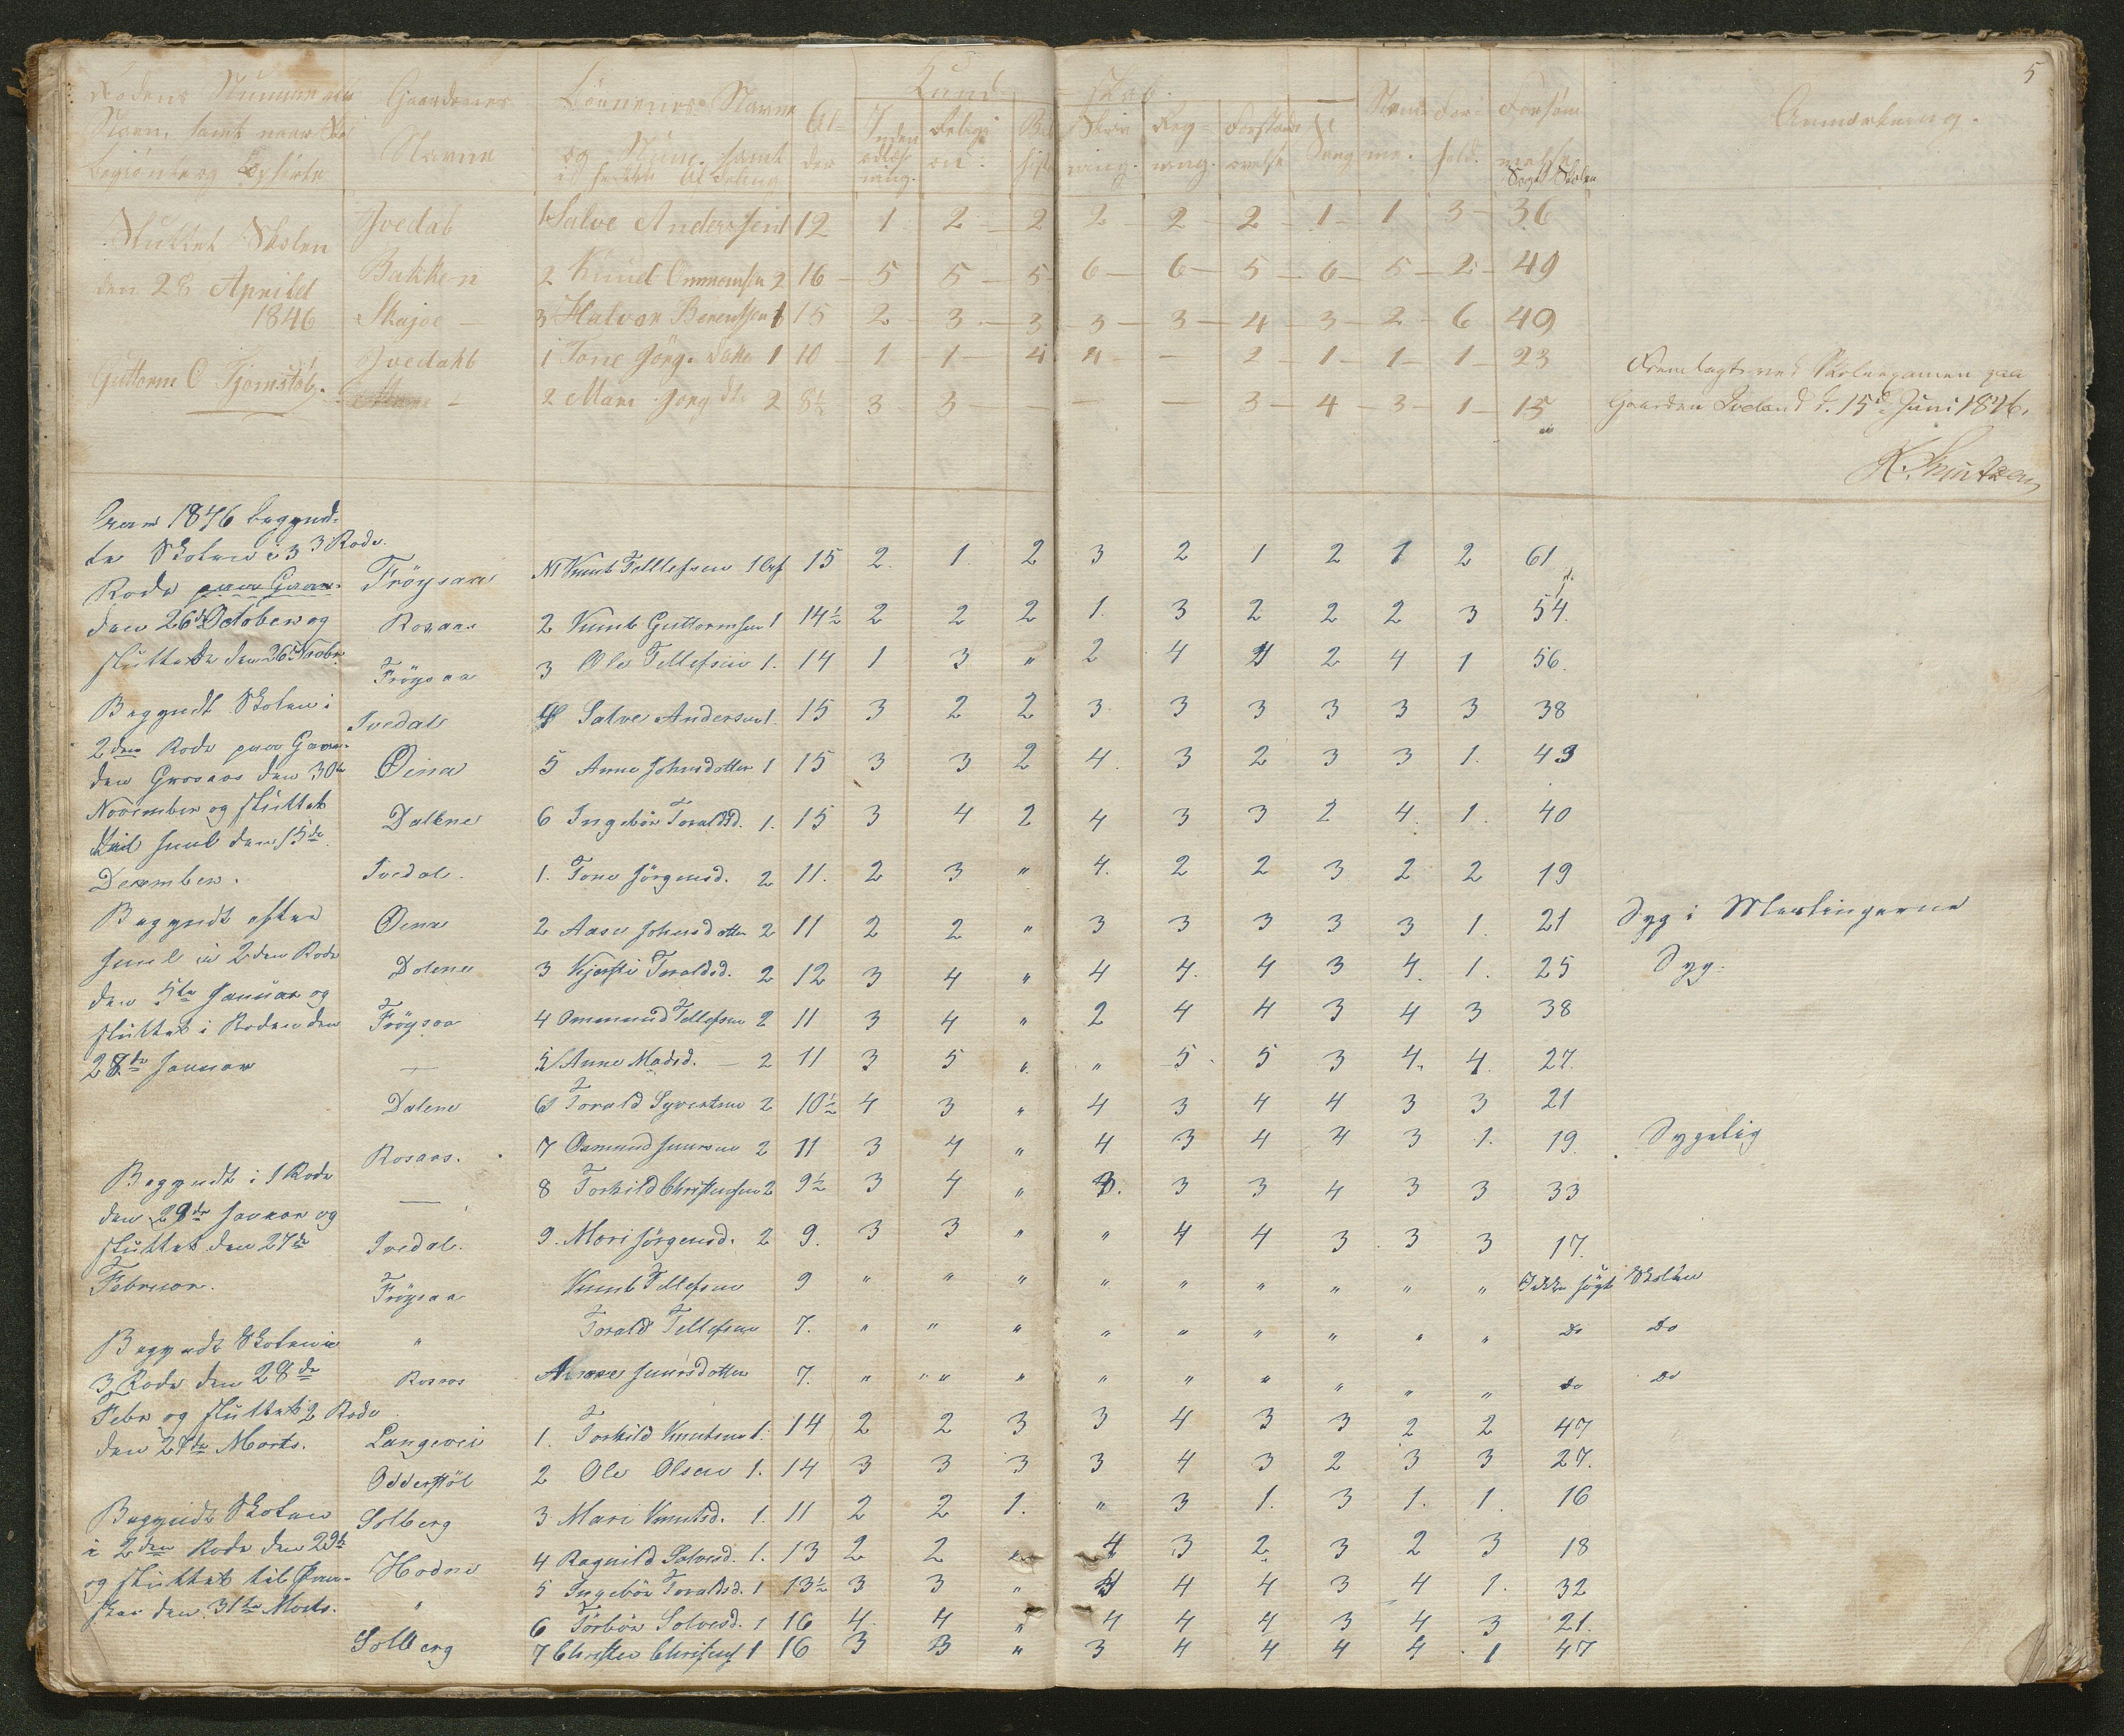 5
Kund skab.
Gaardenes Navne
Børnenes Navne og Num. samt
Al= der
Religi on
Skriv ning.
Reg= ning.
Sang
Anmærkning.
Sluttet Skolen
den 28 Aprilel
1846
Guttorm O Tjomstöl.
Ivedal 1 Salve Anderssen 1 12 1 2 2 2 2 2 1 1 3 36
Bakken 2 Knud Ommomsen 2 16 5 5 5 6 6 5 6 5 2 49
Skajoe 3 Halvor Berentsen 1 15 2 3 3 3 3 4 3 2 6 49
Ivedahl 1 Tone Jörg. Datter 1 10 1 1 4 4 2 1 1 1 23
2 Mari Jörg dtr 2 8½ 3 3 3 4 3 1 15
Fremlagt ved Skoleexamen paa
Gaarden Iveland d. 15de Juni 1846.
K. Knutzen
Aar 1846 begynd=
te Skolen i 3 3 Rode.
Rode paa Gaar=
den 26de October og
sluttede den 26de Novbr
Begyndt Skolen i
2den Rode paa Gaar=
den Grosaas den 30te
November og sluttet
til Juul den 15de
December.
Begyndt efter
Juul i 2den Rode
den 5te Januar og
sluttet i Roden den
28de Januar
Begyndt i 1 Rode
den 29de Januar og
sluttet den 27de
Februar.
Begyndt Skolen i
3 Rode den 28de
Febr og sluttet 2 Rode
den 27de Marts.
Begyndt Skolen
i 2den Rode den 29de
og sluttet til Paa=
ske den 31te Marts.
Fröysaa N1 Knut Tellefsen 1 Cl 15 2 1 2 3 2 1 2 1 2 61
Rosaas 2 Knut Guttormsen 1 14½ 2 2 2 1 3 2 2 2 3 54
Fröysaa 3 Ole Tellefsen 1. 14 1 3 " 2 4 4 2 4 1 56.
Ivedal 4 Salve Andersen 1. 15 3 2 2 3 3 3 3 3 3 38
Öina 5 Anne Johnsdotter 1 15 3 3 2 4 3 2 3 3 1. 43
Dalene 6 Ingebör Toraldsd. 1. 15 3 4 2 4 3 3 2 4 1. 40
Ivedal. 1. Tone Jörgensd. 2 11. 2 3 " 4. 2 2 3 2 2 19
Öina 2 Aase Johnsdotter 2 11 2 2 " 3 3 3 3 3 1. 21 Syg i Meslingerne
Dolene 3 Kjersti Toraldsd. 2 12 3 4 " 4 4. 4 3 4. 1. 25 Syg.
Fröysaa 4 Ommund Tellefsen 2 11 3 4 " 2 4 4 3 4 3 38
— 5 Anne Madsd. — 2 11 3 5 " " 5 5 3 4. 4. 27.
Dalene 6 Torald Syvertsen 2 10½ 4 3 " 4 3 4 4 3 3 21
Rosaas. 7 Osmund Juursen 2 11 3 4 " 4 3 4 4 3 1. 19. Sygelig
— 8 Torkild Christensen 2 9½ 3 4 " 3. 3 3 4 3 3 33
Ivedal. 9. Mari Jörgensd. 2 9. 3 3 " " 4 4 3 3 3 17.
Fröysaa Knut Tellefsen 9 " " " " " " " " " Ikke sögt Skolen
" Torald Tellefsen 7. " " " " " " " " " Do Do
Rosaas Juursdotter 7. " " " " " " " " " Do Do
Langevei 1. Torkild Knutsen 1. 14 2 2 3 3 4 3 3 2 2 47
Odderstöl 2 Ole Olsen 1. 14 3 3 3 3 4 3 2 3 3 27.
Solberg 3 Mari Knutsd. 1. 11 2 2 1. " 3 1. 3 1. 1. 16
Hodne 4 Ragnild Salvesd. 1. 13 2 2 " 4 3 2 3 2 3 18
5 Ingebör Toraldsd. 1 13½ 3 3 " 4 4 4 3 4 1. 32
" 6 Törbör Solvesd. 1 16 4 4 " 4 4 4 3 4 3 21.
Solberg 7 Christen Christens 1 16 3 3 " 3 4 4 4 4 1 47